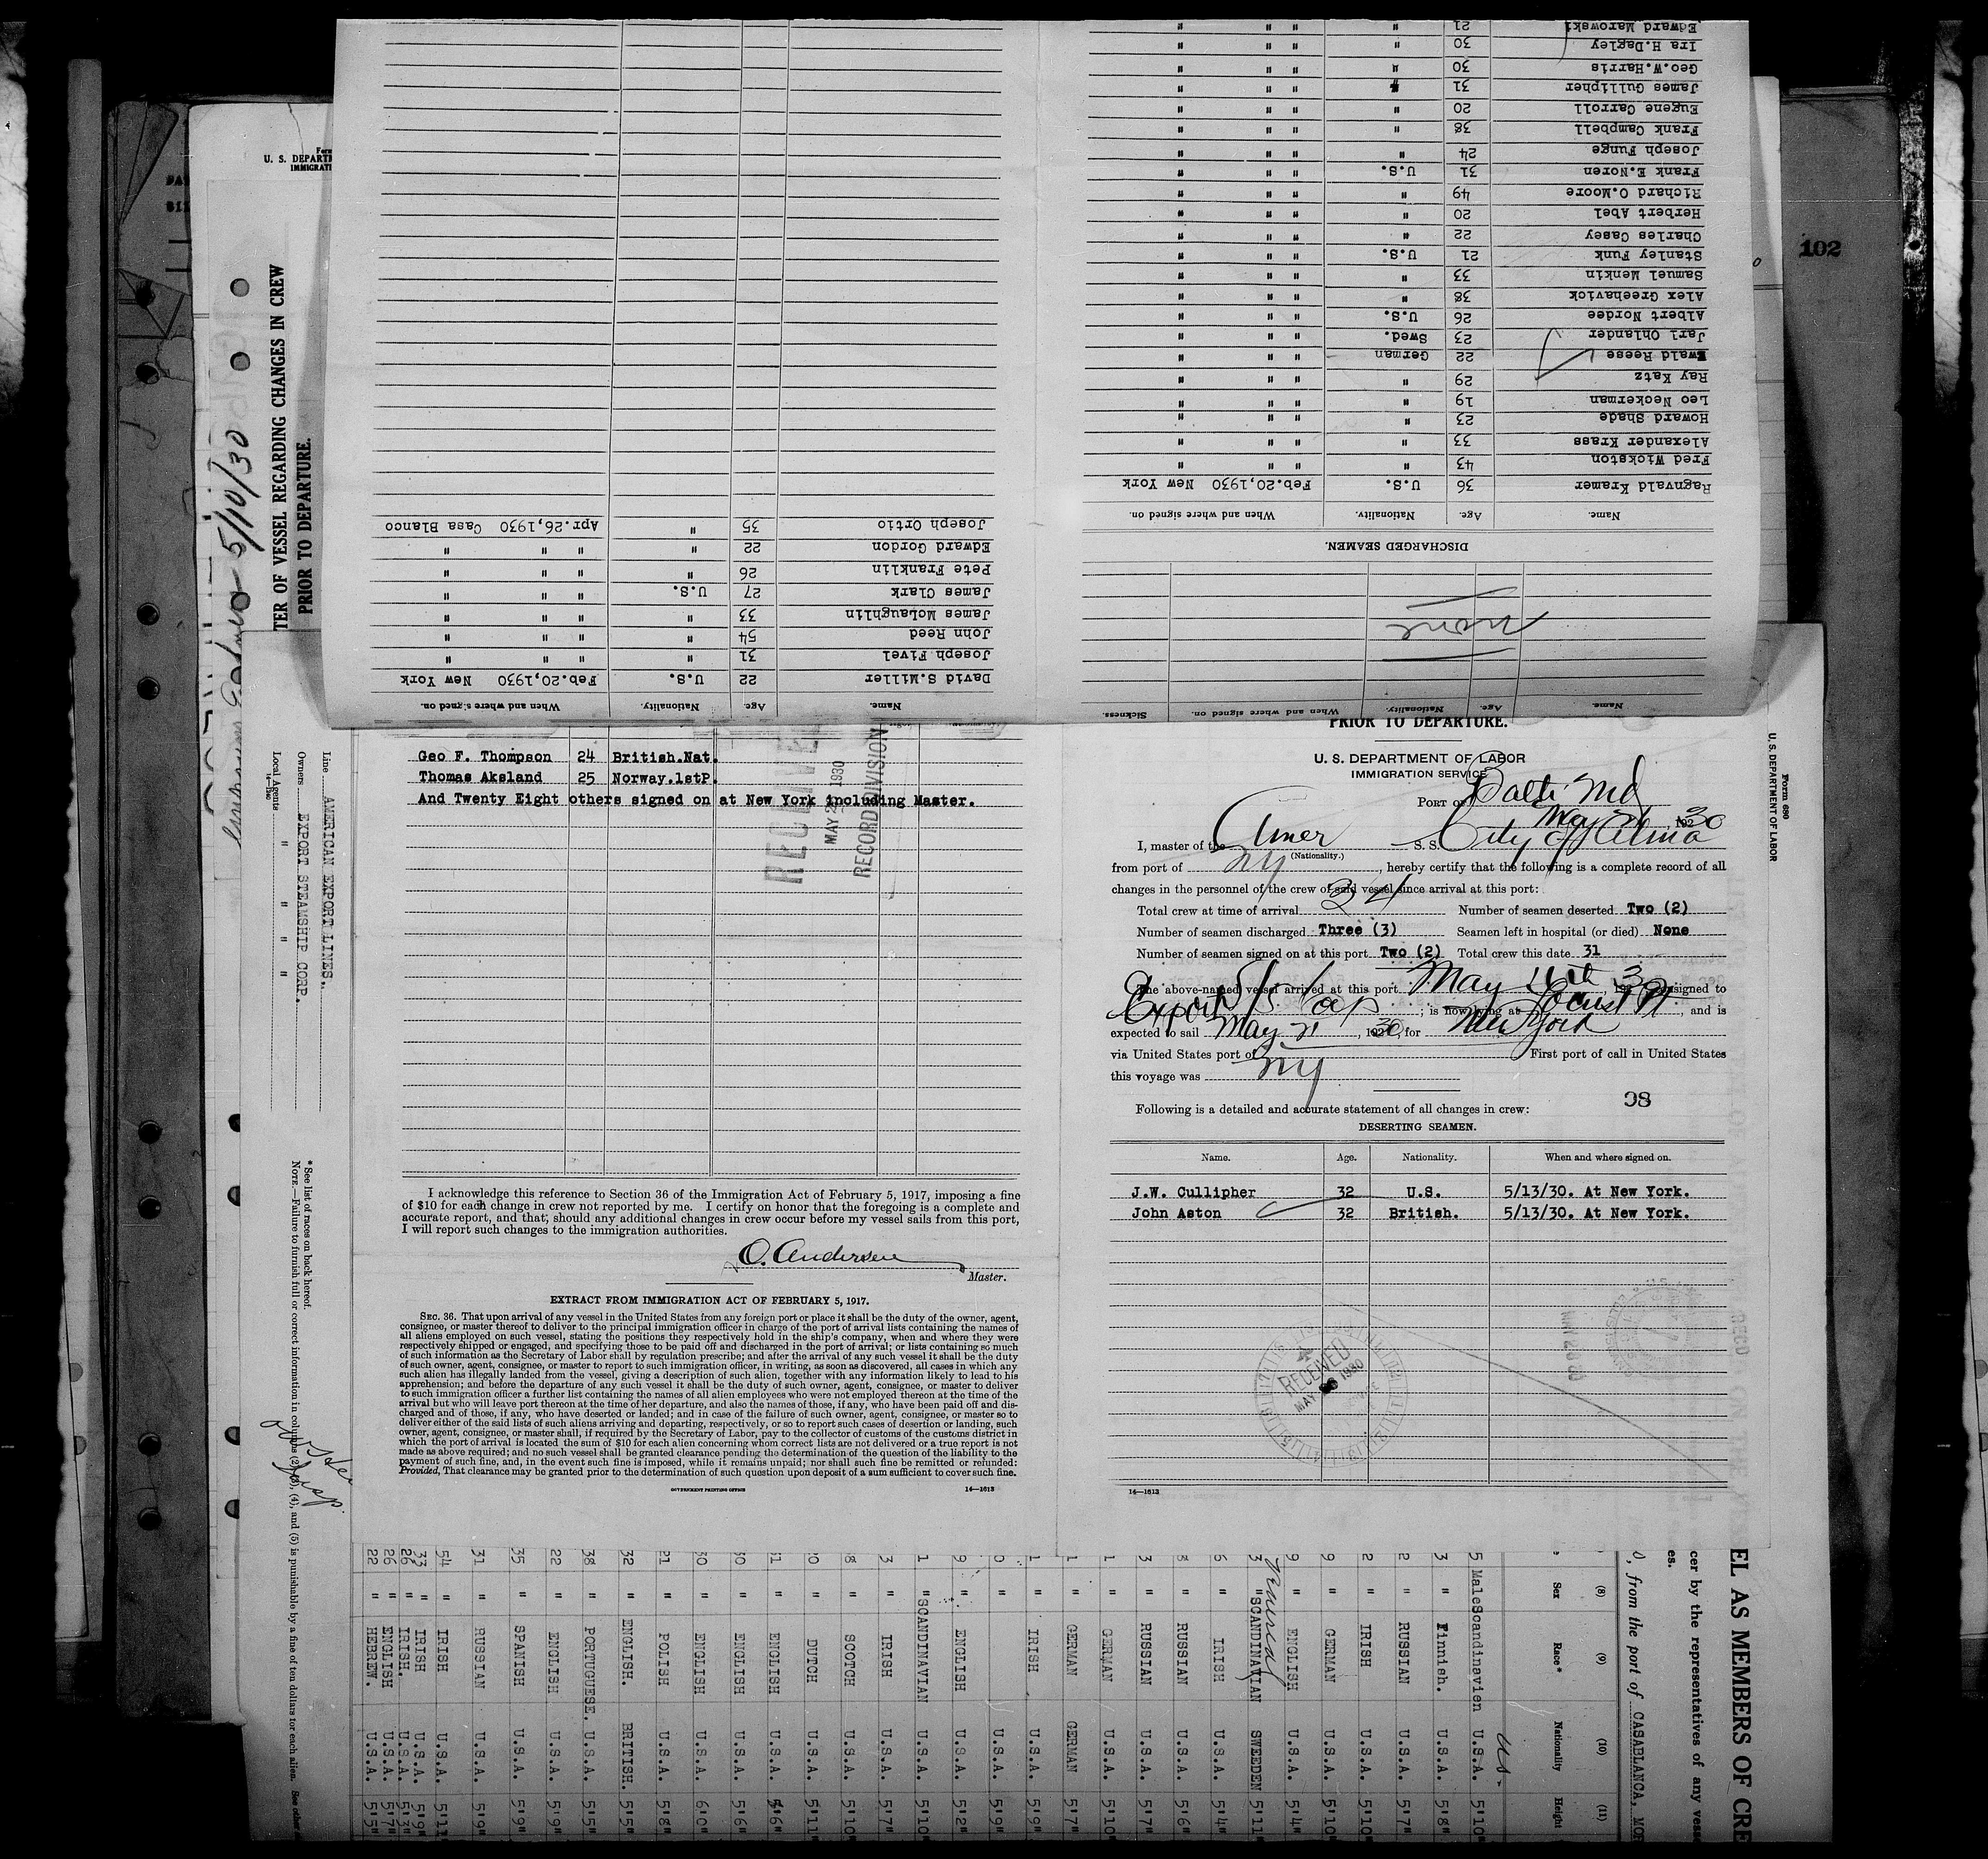 102
Form
U. S. DEPARTM
IMMIGRATI
TER OF VESSEL REGARDING CHANGES IN CREW
PRIOR TO DEPARTURE.
5/10/30
DISCHARGED SEAMEN.
Name. Age. Nationality. When and where signed on.
Ragnvald Kramer 36 U.S. Feb.20,1930 New York
Fred Wickston 43 " " " "
Alexander Krass 33 " " " "
Howard Shade 23 " " " "
Leo Neckerman 19 " " " "
Ray Katz 29 " " " "
Ewald Reese 22 German " " "
Jarl Ohlander 23 Swed. " " "
Albert Nordee 26 U.S. " " "
Alex Greehavick 38 " " " "
Samuel Menkin 33 " " " "
Stanley Funk 21 U.S. " " "
Charles Casey 22 " " " "
Herbert Abel 20 " " " "
Richard O.Moore 49 " " " "
Frank E.Noren 31 U.S. " " "
Joseph Funge 24 " " " "
Frank Campbell 38 " " " "
Eugene Carroll 20 " " " "
James Gullipher 31 " " " "
Geo.W.Harris 30 " " " "
Ira H.Dagley 30 " " " "
Edward Marowski 21 " " " "
Name. Age. Nationality. When and where signed on. Sickness.
None
Name. Age. Nationality. When and where signed on.
David S.Miller 22 U.S. Feb.20,1930 New York
Joseph Fivel 31 " " " "
John Reed 54 " " " "
James McLaughlin 33 " " " "
James Clark 27 U.S. " " "
Pete Franklin 26 " " " "
Edward Gordon 22 " " " "
Joseph Ortio 35 " Apr.26,1930 Casa Blanco
Geo F. Thompson 24 British.Nat.
Thomas Aksland 25 Norway.1stP.
And Twenty Eight others signed on at New York including Master.
RECEIVED
MAY 2 1930
RECORD DIVISION
I acknowledge this reference to Section 36 of the Immigration Act of February 5, 1917, imposing a fine
of $10 for each change in crew not reported by me. I certify on honor that the foregoing is a complete and
accurate report, and that, should any additional changes in crew occur before my vessel sails from this port,
I will report such changes to the immigration authorities.
O. Andersen
Master.
EXTRACT FROM IMMIGRATION ACT OF FEBRUARY 5, 1917.
SEC. 36. That upon arrival of any vessel in the United States from any foreign port or place it shall be the duty of the owner, agent,
consignee, or master thereof to deliver to the principal immigration officer in charge of the port of arrival lists containing the names of
all aliens employed on such vessel, stating the positions they respectively hold in the ship's company, when and where they were
respectively shipped or engaged, and specifying those to be paid off and discharged in the port of arrival; or lists containing so much
of such information as the Secretary of Labor shall by regulation prescribe; and after the arrival of any such vessel it shall be the duty
of such owner, agent, consignee, or master to report to such immigration officer, in writing, as soon as discovered, all cases in which any
such alien has illegally landed from the vessel, giving a description of such alien, together with any information likely to lead to his
apprehension; and before the departure of any such vessel it shall be the duty of such owner, agent, consignee, or master to deliver
to such immigration officer a further list containing the names of all alien employees who were not employed thereon at the time of the
arrival but who will leave port thereon at the time of her departure, and also the names of those, if any, who have been paid off and dis-
charged and of those, if any, who have deserted or landed; and in case of the failure of such owner, agent, consignee, or master so to
deliver either of the said lists of such aliens arriving and departing, respectively, or so to report such cases of desertion or landing, such
owner, agent, consignee, or master shall, if required by the Secretary of Labor, pay to the collector of customs of the customs district in
which the port of arrival is located the sum of $10 for each alien concerning whom correct lists are not delivered or a true report is not
made as above required; and no such vessel shall be granted clearance pending the determination of the question of the liability to the
payment of such fine, and, in the event such fine is imposed, while it remains unpaid; nor shall such fine be remitted or refunded:
Provided, That clearance may be granted prior to the determination of such question upon deposit of a sum sufficient to cover such fine.
GOVERNMENT PRINTING OFFICE 14—1613
Form 680
U. S. DEPARTMENT OF LABOR
PRIOR TO DEPARTURE.
U. S. DEPARTMENT OF LABOR
IMMIGRATION SERVICE
PORT OF Balto Md
May 21, 1930
I, master of the Amer S. S. City of Alma
(Nationality.)
from port of NY, hereby certify that the following is a complete record of all
changes in the personnel of the crew of said vessel since arrival at this port:
Total crew at time of arrival 34 Number of seamen deserted Two (2)
Number of seamen discharged Three (3) Seamen left in hospital (or died) None
Number of seamen signed on at this port Two (2) Total crew this date 31
The above-named vessel arrived at this port May 16th, 30 consigned to
Export S/S Corp; is now lying at Locust Pt, and is
expected to sail May 21, 1930, for New York
via United States port of First port of call in United States
this voyage was NY
98
Following is a detailed and accurate statement of all changes in crew:
DESERTING SEAMEN.
Name. Age. Nationality. When and where signed on.
J.W. Cullipher 32 U.S. 5/13/30. At New York.
John Aston 32 British. 5/13/30. At New York.
RECEIVED
MAY 26 1930
14—1613
Line AMERICAN EXPORT LINES.
Owners EXPORT STEAMSHIP CORP.
Local Agents " " " "
14—Dec
* See list of races on back hereof.
NOTE.—Failure to furnish full or correct information in columns (2), (3), (4), and (5) is punishable by a fine of ten dollars for each alien. See other
EL AS MEMBERS OF CRE
cer by the representatives of any vess
es.
0, from the port of CASABLANCA, MOR
(8) (9) (10) (11)
Sex Race* Nationality Height
US-
5 Male Scandinavien U.S.A. 5'10"
3 " Finnish. U.S.A. 5'8"
2 " RUSSIAN U.S.A. 5'7"
2 " IRISH U.S.A. 5'10"
9 " GERMAN U.S.A. 5'10"
9 " ENGLISH U.S.A. 5'4"
3 " SCANDINAVIAN SWEEDEN 5'11"
6 " IRISH U.S.A. 5'4"
8 " RUSSIAN U.S.A. 5'6"
3 " RUSSIAN U.S.A. 5'7"
1 " GERMAN U.S.A. 5'10"
1 " GERMAN GERMAN 5'7"
1 " IRISH U.S.A. 5'9"
0 " U.S.A. 5'9"
9 " ENGLISH U.S.A. 5'2"
1 " SCANDINAVIAN U.S.A. 5'10"
3 " IRISH U.S.A. 5'7"
8 " SCOTCH U.S.A. 5'10"
0 " DUTCH U.S.A. 5'11"
31 " ENGLISH U.S.A. 5'6"
30 " ENGLISH U.S.A. 5'6"
30 " ENGLISH U.S.A. 6'0"
21 " POLISH U.S.A. 5'8"
32 " ENGLISH. BRITISH. 5'5"
38 " PORTUGUESE. U.S.A. 5'5"
22 " ENGLISH U.S.A. 5'9"
35 " SPANISH U.S.A. 5'9"
31 " RUSSIAN U.S.A. 5'9"
54 " IRISH U.S.A. 5'11"
33 " IRISH U.S.A. 5'9"
26 " IRISH. U.S.A. 5'3"
26 " ENGLISH U.S.A. 5'7"
22 " HEBREW. U.S.A. 5'5"